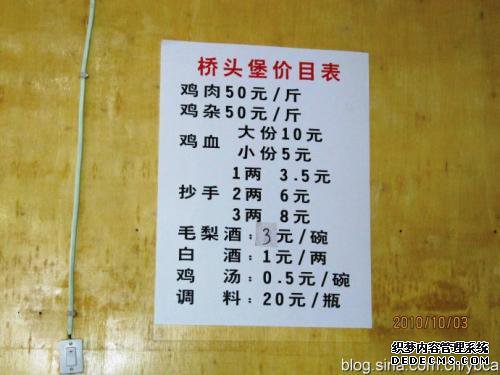 桥头堡价目表
鸡肉50元/斤
鸡杂50元/斤
鸡血 大份10元
小份5元
1两 3.5元
抄手 2两 6元
3两 8元
毛梨酒:3元/碗
白酒:1元/两
鸡汤:0.5元/碗
调料:20元/瓶
2010/10/03
织梦内容管理系统
DEDECMS.COM